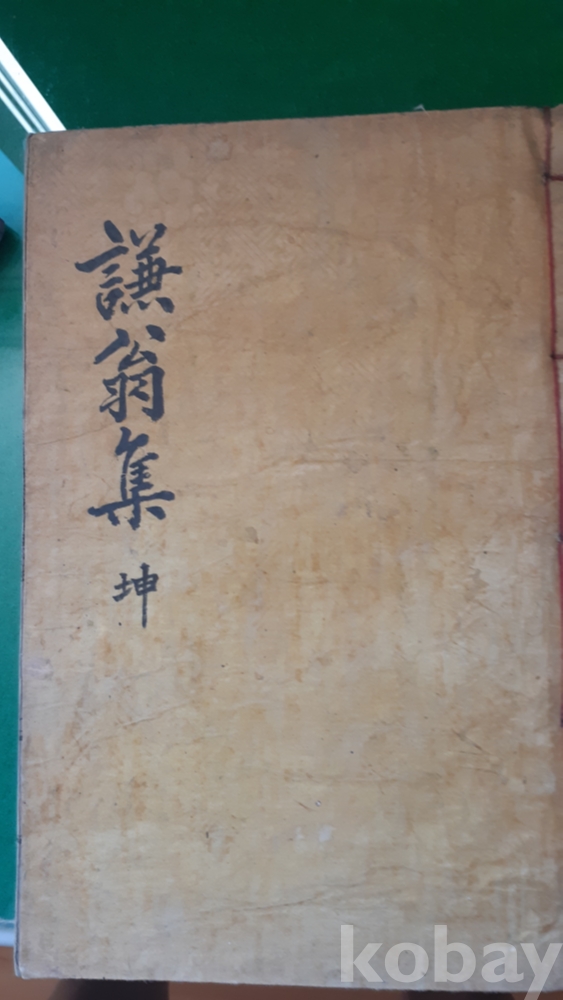 謙翁集
坤
kobay